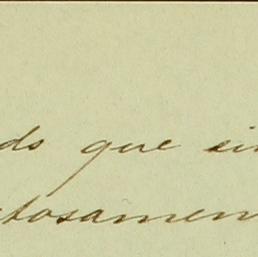 ds que si
tosamen